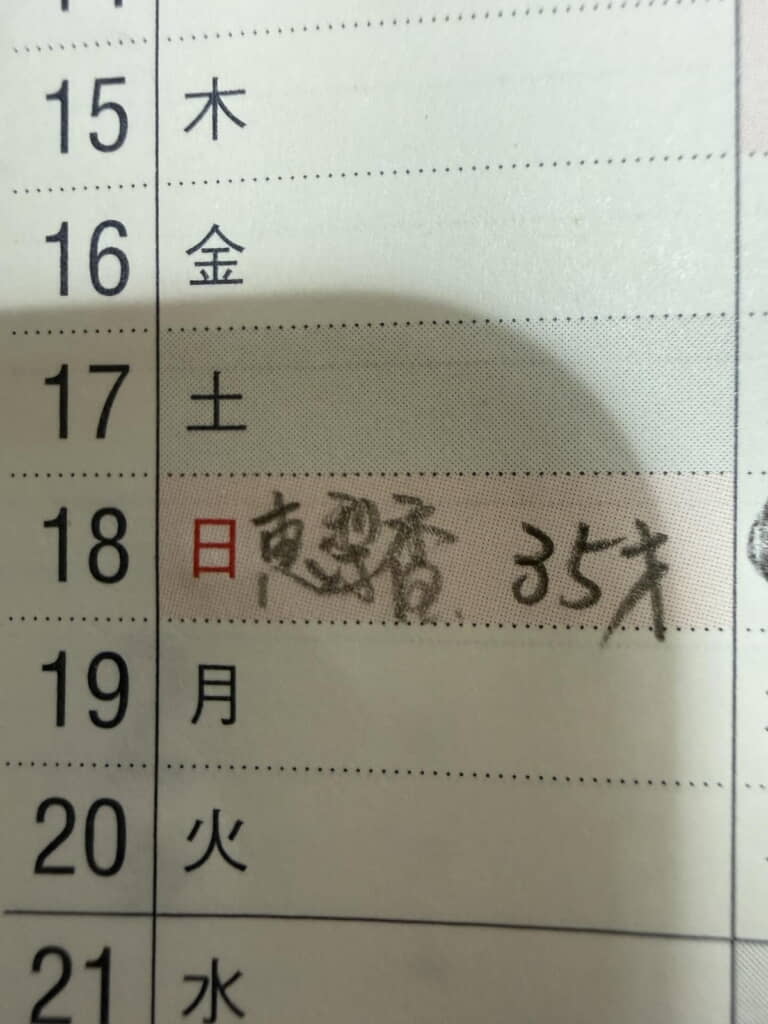 15 木
16 金
17 土
18 日 恵梨香 35才
19 月
20 火
21 水